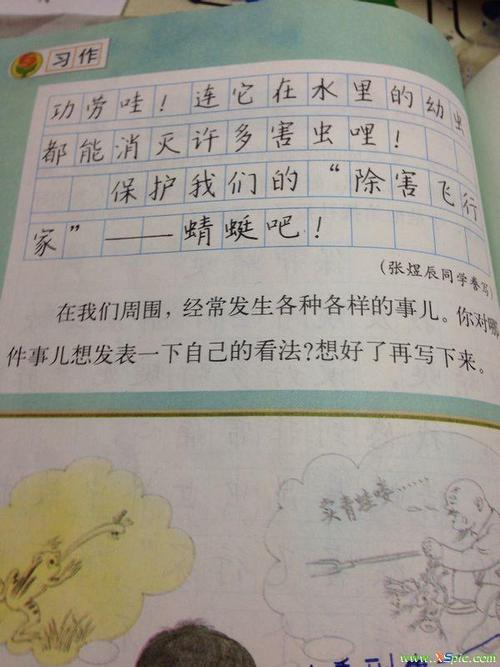 习作
功劳哇！连它在水里的幼虫
都能消灭许多害虫哩！
保护我们的“除害飞行
家”——蜻蜓吧！
(张煜辰同学誊写)
在我们周围，经常发生各种各样的事儿。你对哪
件事儿想发表一下自己的看法?想好了再写下来。
卖青蛙喽……
www.XSpic.com